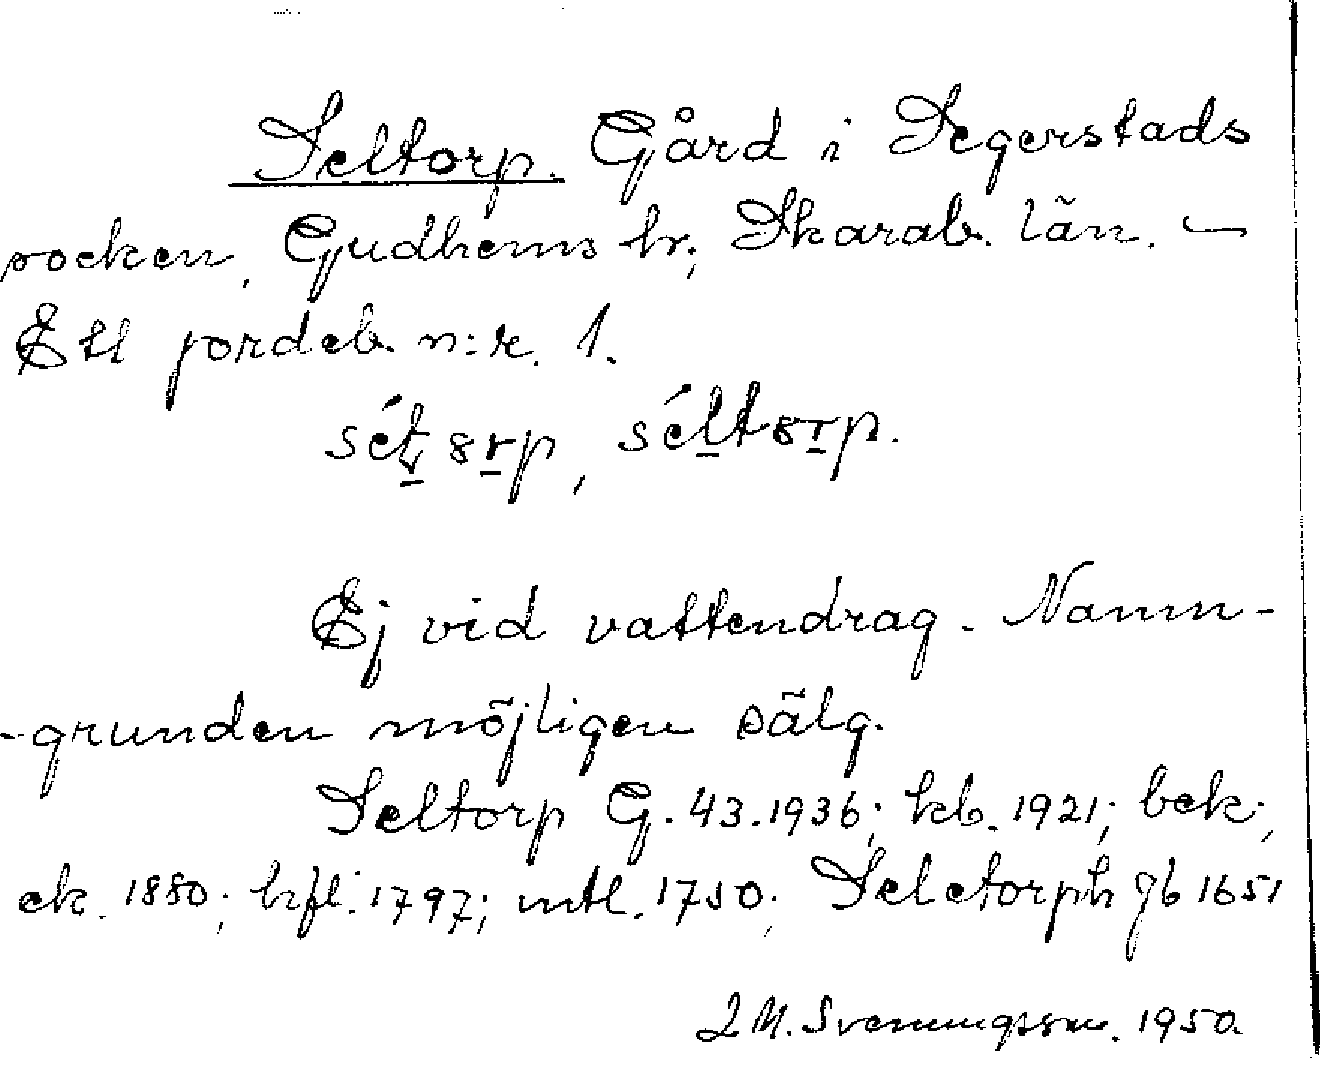 Seltorp. Gård i Segerstads
socken, Gudhems hr; Skarab. län. —
Ett jordeb. n:r. 1.
séltorp.
Ej vid vattendrag. Namn-
-grunden möjligen sälg.
Seltorp G. 43.1936; kb. 1921; bek;
ek. 1880; hfl. 1797; mtl. 1750; Seletorph Jb 1651
Svenungsson. 1950